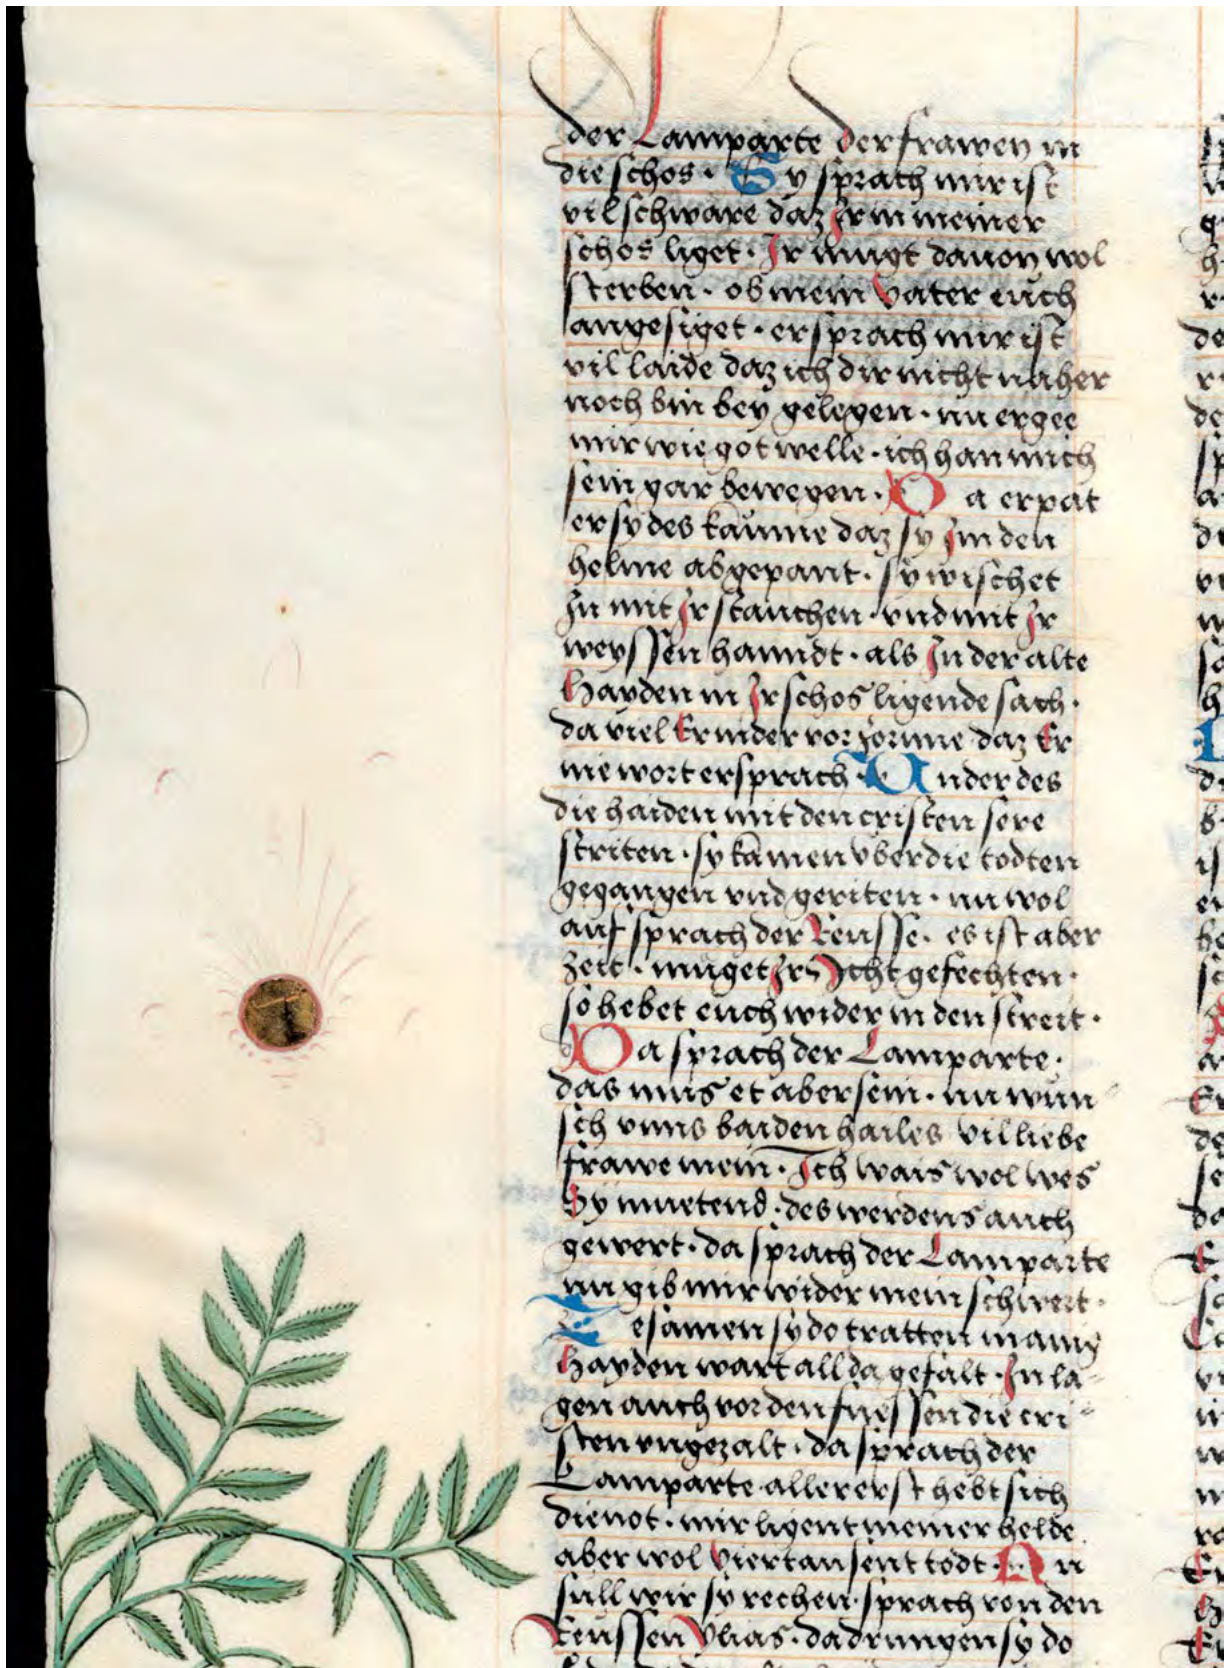 der Lamparte der frawen in
die schos · Sy sprach mir ist
vil schwäre daz Ir in meiner
schos liget · Ir mügt dauon wol
sterben · ob mein Vater euch
angesiget · er sprach mir ist
vil laide daz ich dir nicht naher
noch bin bey gelegen · nu ergee
mir wie got welle · ich han mich
sein gar bewegen · Da erpat
er sy des kaume daz sy Im den
helme abgepant · sy wischet
In mit Ir stauchen · vnd mit Ir
weyssen hanndt · als In der alte
Hayden in Ir schos ligende sach ·
da viel Er nider vor zornne daz Er
nie wort ersprach · Vnder des
die haiden mit den cristen sere
striten · sy kamen vber die todten
gegangen vnd geriten · nu wol
auf sprach der Reusse · es ist aber
zeit · müget Ir Icht gefechten ·
so hebet euch wider in den streit ·
Da sprach der Lamparte ·
das mus et aber sein · nu wün-
sch vnns baiden hailes vil liebe
frawe mein · Ich wais wol wes
Sy muetend · des werdens auch
gewert · da sprach der Lamparte
nu gib mir wider mein schwert ·
Zesamen sy do tratten manig
Hayden wart all da gefalt · In la-
gen auch vor den fuessen die cri-
sten vngezalt · da sprach der
Lamparte allererst hebt sich
die not · mir ligent meiner helde
aber wol Viertausent todt · Nu
sull wir sy rechen · sprach von den
Reussen Ylias · da drungen sy do